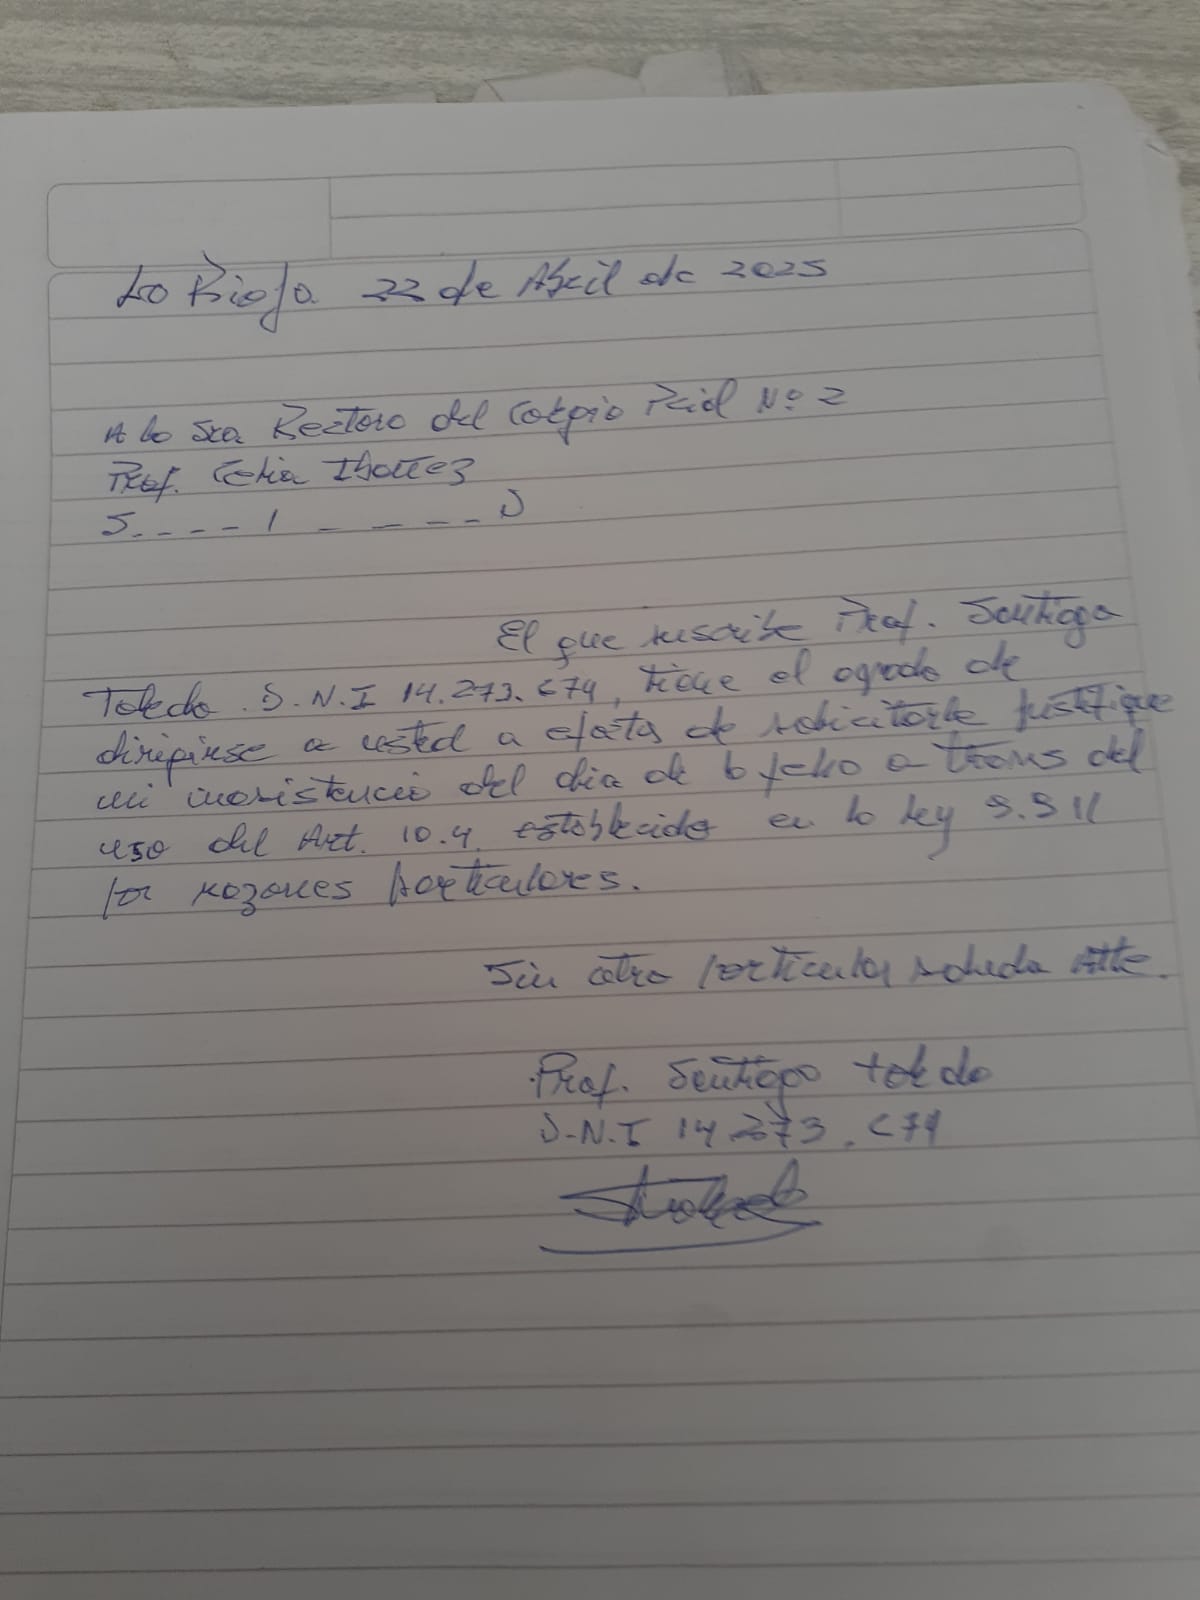 La Rioja 22 de Abril de 2025
A la Sra Rectora del Colegio Pcial Nº 2
Prof. Celia Ibañez
S----/-----D
El que suscribe Prof. Santiago
Toledo. D.N.I 14.273.674, tiene el agrado de
dirigirse a usted a efectos de solicitarle justifique
mi inasistencia del dia de la fecha a traves del
uso del Art. 10.4. establecido en la ley 9.911
por razones particulares.
Sin otro particular saluda Atte.
Prof. Santiago Toledo
D.N.I 14.273.674